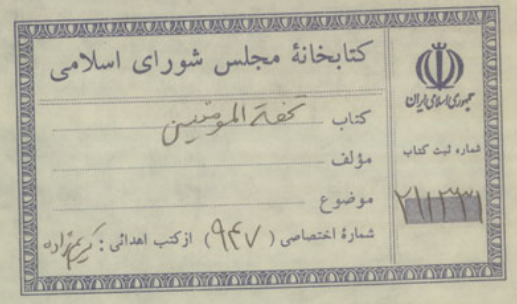 کتابخانهٔ مجلس شورای اسلامی
کتاب تحفة المومنین
مؤلف
موضوع
شمارهٔ اختصاصی ( ۹۴۷ ) از کتب اهدائی :
جمهوری اسلامی ایران
شماره ثبت کتاب